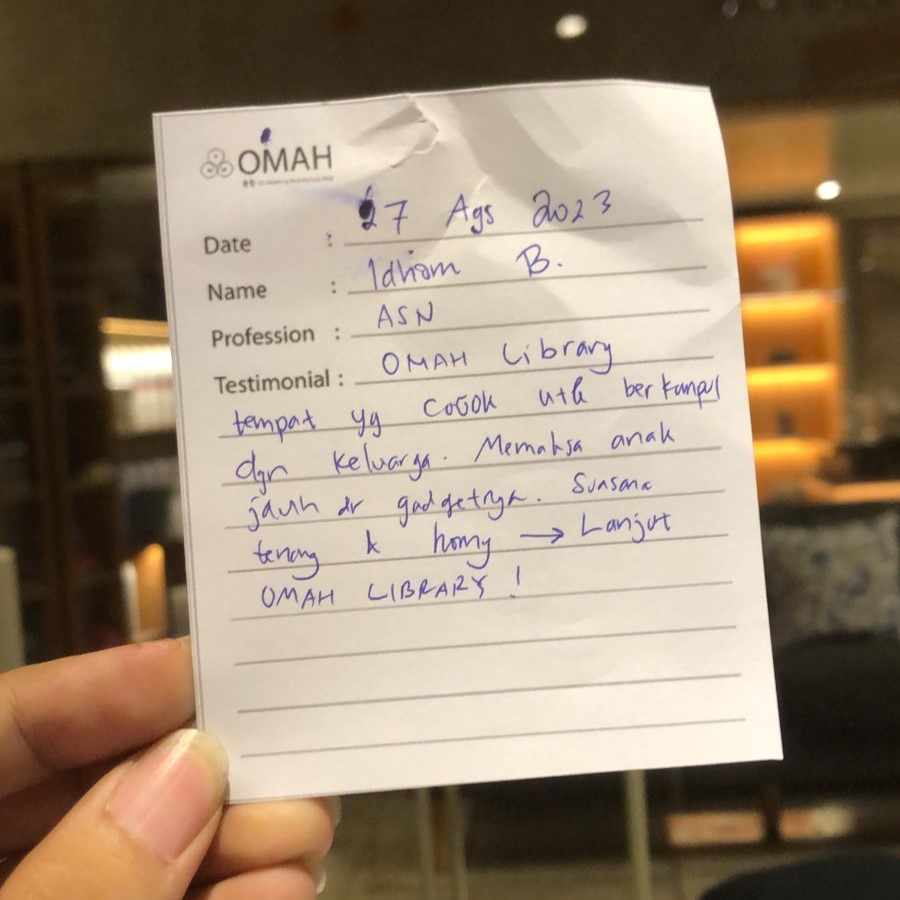 OMAH
27 Ags 2023
Date :
Idham B.
Name :
ASN
Profession :
OMAH Library
Testimonial :
tempat yg cocok utk berkumpul
dgn keluarga. Memaksa anak
jauh dr gadgetnya. Suasana
tenang & homy → Lanjut
OMAH LIBRARY !